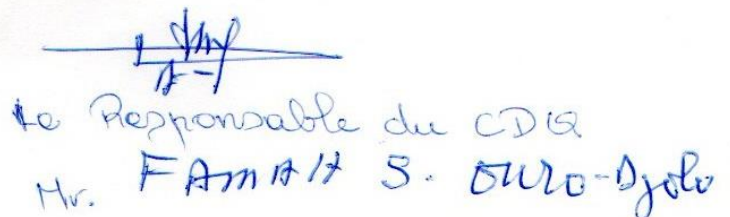 Le Responsable du CDQ
Mr. FAMAH S. OURO-Djolo